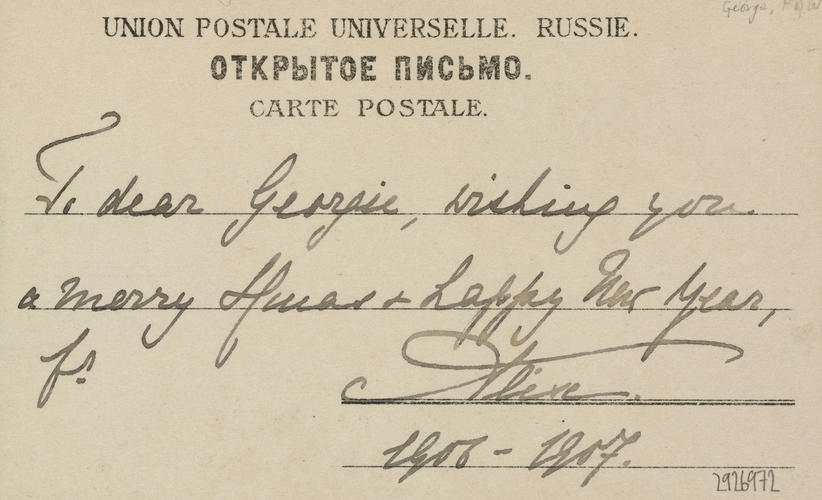 George,
UNION POSTALE UNIVERSELLE. RUSSIE.
ОТКРЫТОЕ ПИСЬМО.
CARTE POSTALE.
To dear Georgie, wishing you
a merry Xmas & happy New Year,
fr. Alix.
1906 - 1907.
2926972